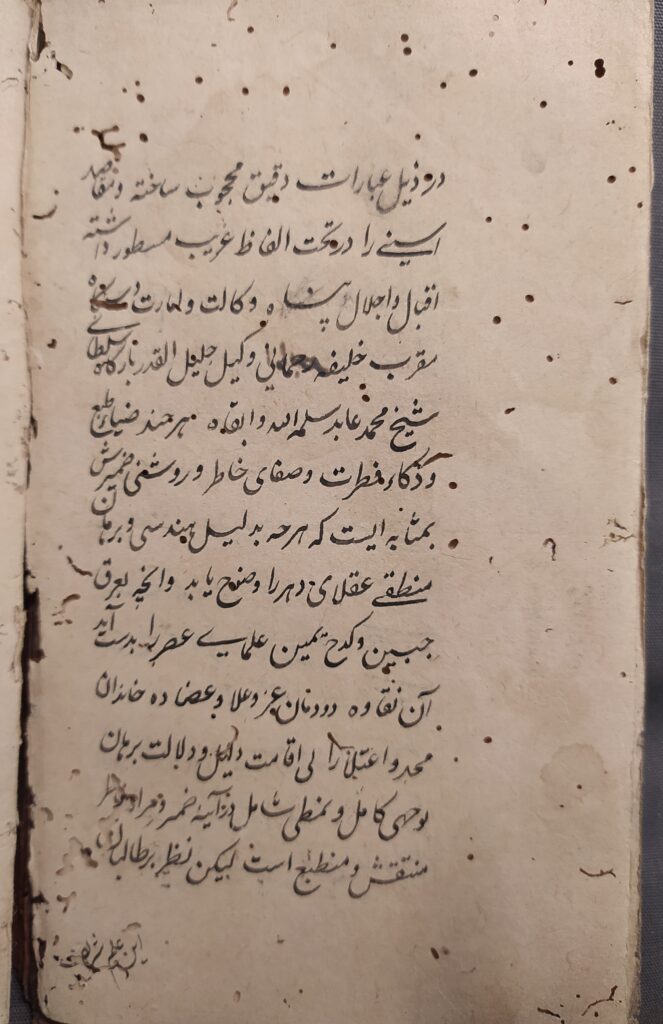 در ذیل عبارات دقیق محجوب ساخته و مقاصد
اسنی را در تحت الفاظ غریب مسطور داشته
اقبال و اجلال پناه وکالت و امارت دستگاه
مقرب خلیفه رحمانی وکیل جلیل القدر بارگاه سلطانی
شیخ محمد عابد سلمه الله وابقاه هر چند ضیاء طبع
و ذکاء فطرت و صفای خاطر و روشنی ضمیرش
بمثابه ایست که هرچه بدلیل هندسی و برهان
منطقی عقلای دهر را وضوح یابد وانچه بعرق
جبین و کدح یمین علمای عصر را بدست آید
آن نقاوه دودمان عز و علا و عضاده خاندان
مجد و اعتلا را بی اقامت دلیل و دلالت برهان
بوجهی کامل و نمطی شامل در آینه ضمیر و مراة خاطر
منتقش و منطبع است لیکن نظر بر طالبان
این علم شریف